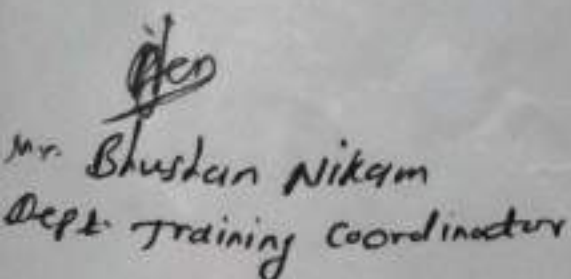 Mr. Bhushan Nikam
Dept. Training Coordinator